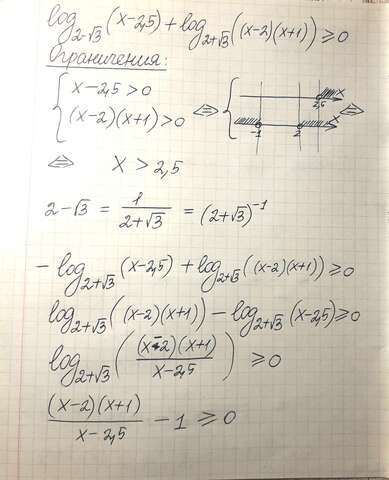 log₂₋√₃(x-2,5)+log₂₊√₃((x-2)(x+1))≥0
Ограничения:
{ x-2,5>0
(x-2)(x+1)>0 ⇔ { 2,5 x
-1 2 x ⇔
⇔ x>2,5
2-√3 = 1/(2+√3) = (2+√3)⁻¹
-log₂₊√₃(x-2,5)+log₂₊√₃((x-2)(x+1))≥0
log₂₊√₃((x-2)(x+1))-log₂₊√₃(x-2,5)≥0
log₂₊√₃((x-2)(x+1)/(x-2,5))≥0
(x-2)(x+1)/(x-2,5) -1≥0